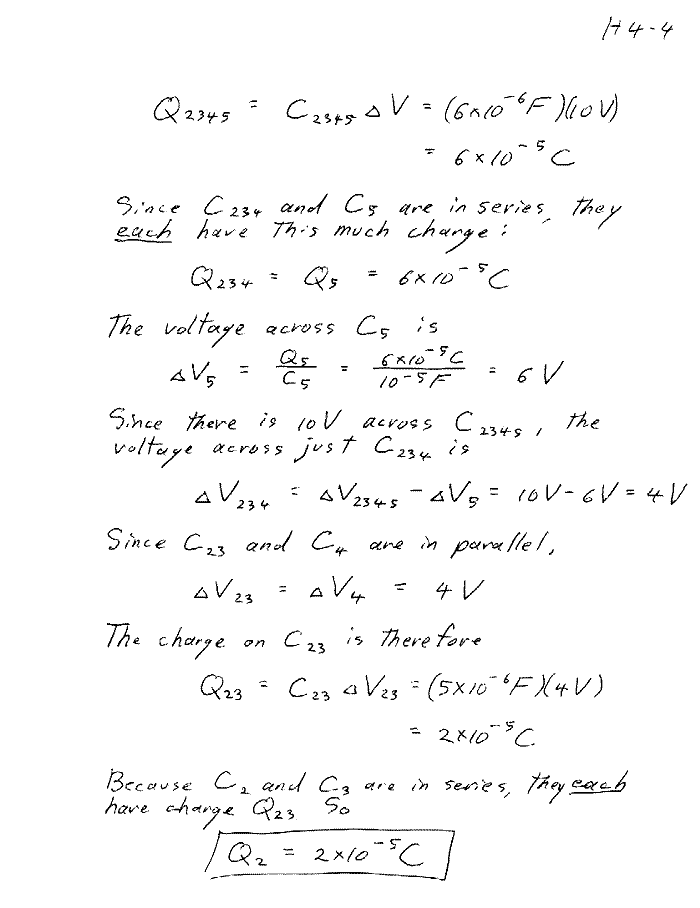 H4-4
Q2345 = C2345 ΔV = (6×10⁻⁶F)(10V)
= 6×10⁻⁵C
Since C234 and C5 are in series, they
each have This much charge:
Q234 = Q5 = 6×10⁻⁵C
The voltage across C5 is
ΔV5 = Q5/C5 = 6×10⁻⁵C/10⁻⁵F = 6V
Since there is 10V across C2345, the
voltage across just C234 is
ΔV234 = ΔV2345 - ΔV5 = 10V-6V = 4V
Since C23 and C4 are in parallel,
ΔV23 = ΔV4 = 4V
The charge on C23 is therefore
Q23 = C23 ΔV23 = (5×10⁻⁶F)(4V)
= 2×10⁻⁵C
Because C2 and C3 are in series, they each
have charge Q23 So
Q2 = 2×10⁻⁵C